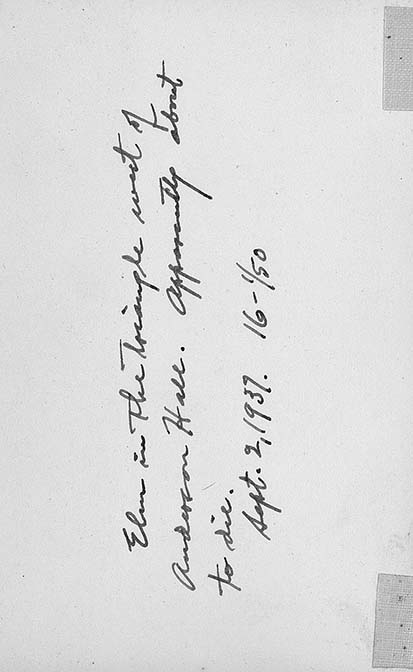 Elm in the triangle west of
Anderson Hall. Apparently about
to die.
Sept. 2, 1937. 16-1/50